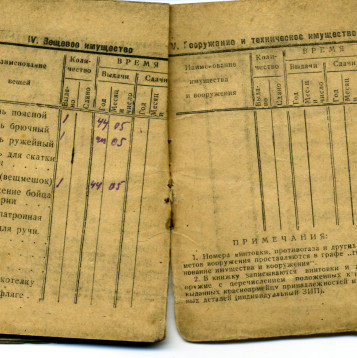 IV. Вещевое имущество
наименование
вещей
Коли-
чество
ВРЕМЯ
Выдачи
Сдачи
Выдано
Сдано
Год
Месяц и
число
Год
Месяц и
поясной
1 44 05
брючный
ружейный
1 05
для скатки
(вещмешок)
1 44 05
бойца
патронная
для ручн.
котелку
фляге.
V. Вооружение и техническое имущество
Наименование
имущества
и вооружения
Коли-
чество
ВРЕМЯ
Выдачи
Сдачи
Выдано
Сдано
Год
Месяц и
число
Год
Месяц и
ПРИМЕЧАНИЯ:
1. Номера винтовки, противогаза и других
метов вооружения проставляются в графе
нование имущества и вооружения".
2. В книжку записываются винтовки и
оружие с перечислением положенных к
выданных красноармейцу принадлежностей и
ных деталей (индивидуальный ЗИП).